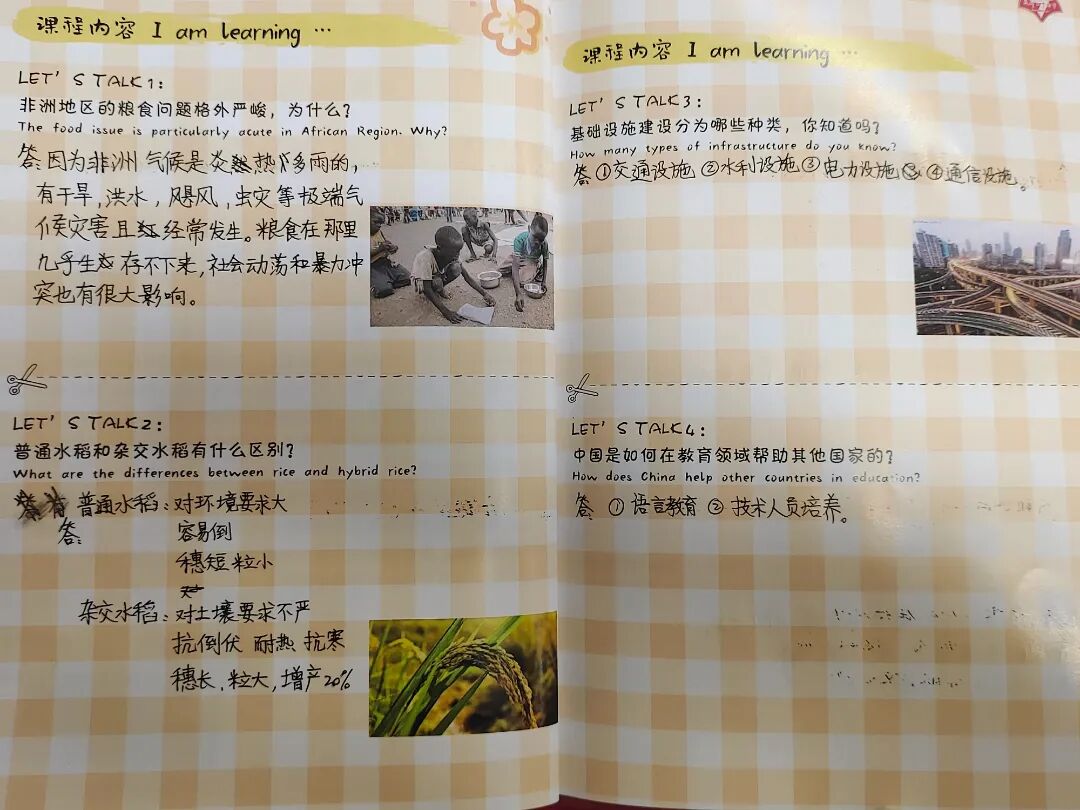 课程内容 I am learning …
LET'S TALK1:
非洲地区的粮食问题格外严峻，为什么？
The food issue is particularly acute in African Region. Why?
答因为非洲气候是炎热热多雨的，
有干旱，洪水，飓风，虫灾等极端气
候灾害且经常发生。粮食在那里
几乎生存不下来，社会动荡和暴力冲
突也有很大影响。
LET'S TALK2:
普通水稻和杂交水稻有什么区别？
What are the differences between rice and hybrid rice?
普通水稻：对环境要求大
答：
容易倒
穗短粒小
杂交水稻：对土壤要求不严
抗倒伏 耐热 抗寒
穗长，粒大，增产20%
课程内容 I am learning …
LET'S TALK3:
基础设施建设分为哪些种类，你知道吗？
How many types of infrastructure do you know?
答①交通设施②水利设施③电力设施④通信设施。
LET'S TALK4:
中国是如何在教育领域帮助其他国家的？
How does China help other countries in education?
答 ①语言教育 ②技术人员培养。